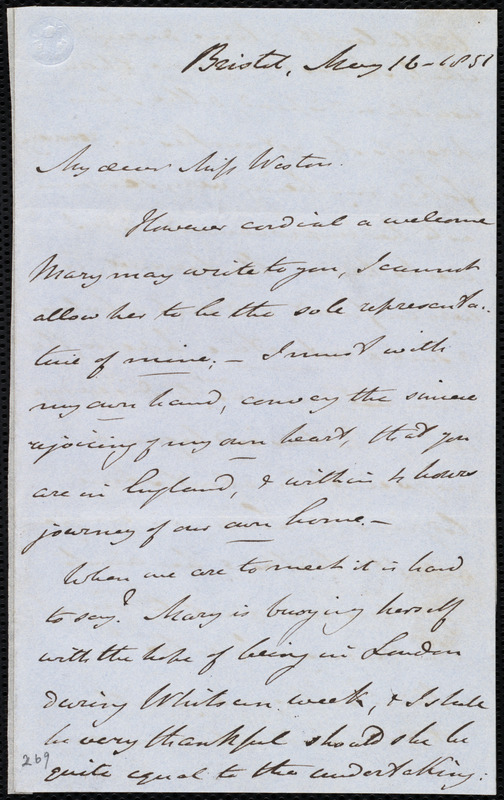 Bristol, May 16 - 1851
My dear Miss Weston.
However cordial a welcome
Mary may write to you, I cannot
allow her to be the sole representa-
tive of mine; - I must with
my own hand, convey the sincere
rejoicing of my own heart, that you
are in England, & within 4 hours
journey of our own home. -
When we are to meet it is hard
to say? Mary is buoying herself
with the hope of being in London
during Whitsun week, & I shall
be very thankful should she be
quite equal to the undertaking:
269